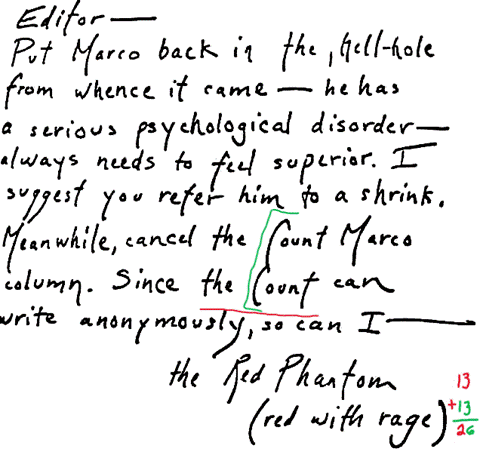 Editor—
Put Marco back in the, hell-hole
from whence it came — he has
a serious psychological disorder—
always needs to feel superior. I
suggest you refer him to a shrink.
Meanwhile, cancel the Count Marco
column. Since the Count can
write anonymously, so can I—
the Red Phantom
(red with rage)
13
+13
26